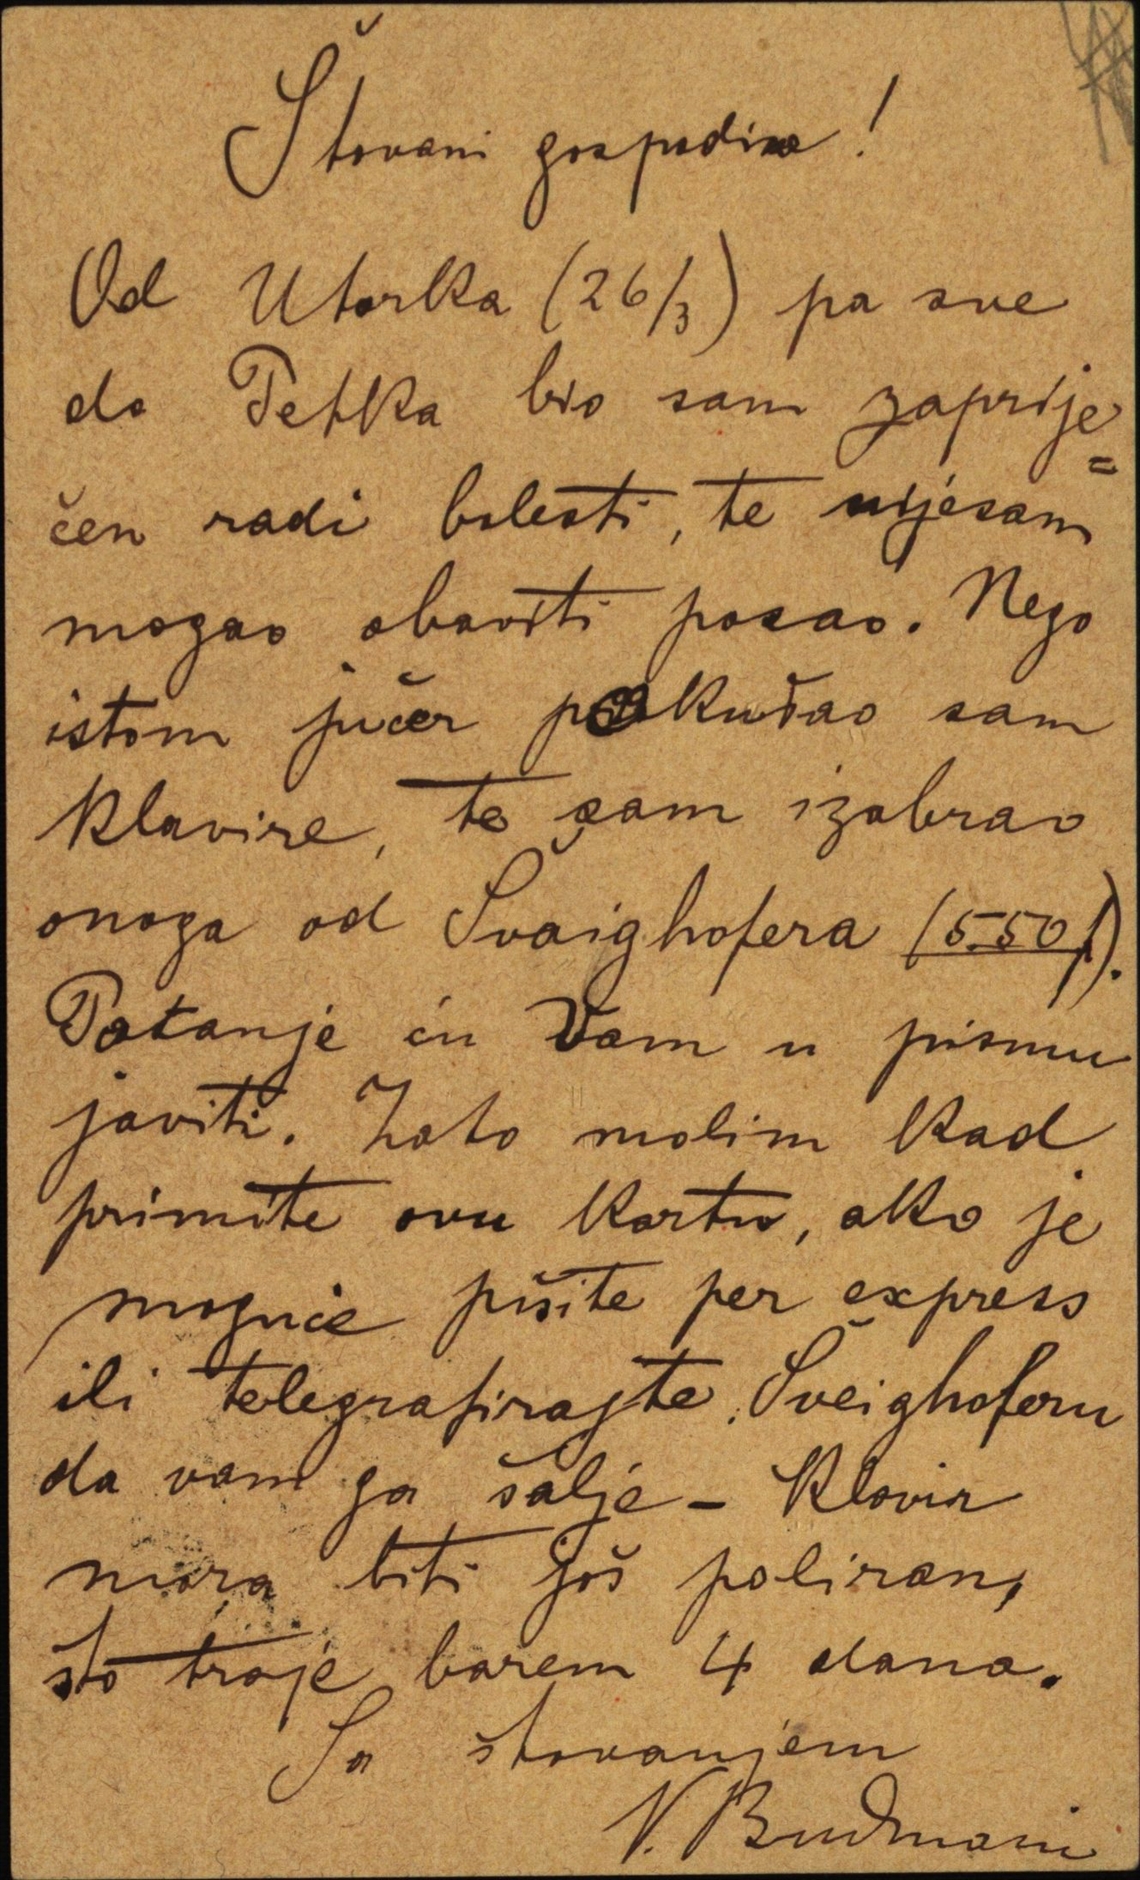 Štovani gospodine!
Od Utorka (26/3) pa sve
do Petka bio sam zaprije=
čen radi bolesti, te nijesam
mogao obaviti posao. Nego
istom jučer pokušao sam
klavire, te sam izabrao
onoga od Švaighofera (550 f).
Potanje ću Vam u pismu
javiti. Zato molim kad
primite ovu kartu, ako je
moguće pišite per express
ili telegrafirajte Šveighoferu
da vam ga šalje – klavir
mora biti još poliran,
što traje barem 4 dana.
Sa štovanjem
V. Budmani